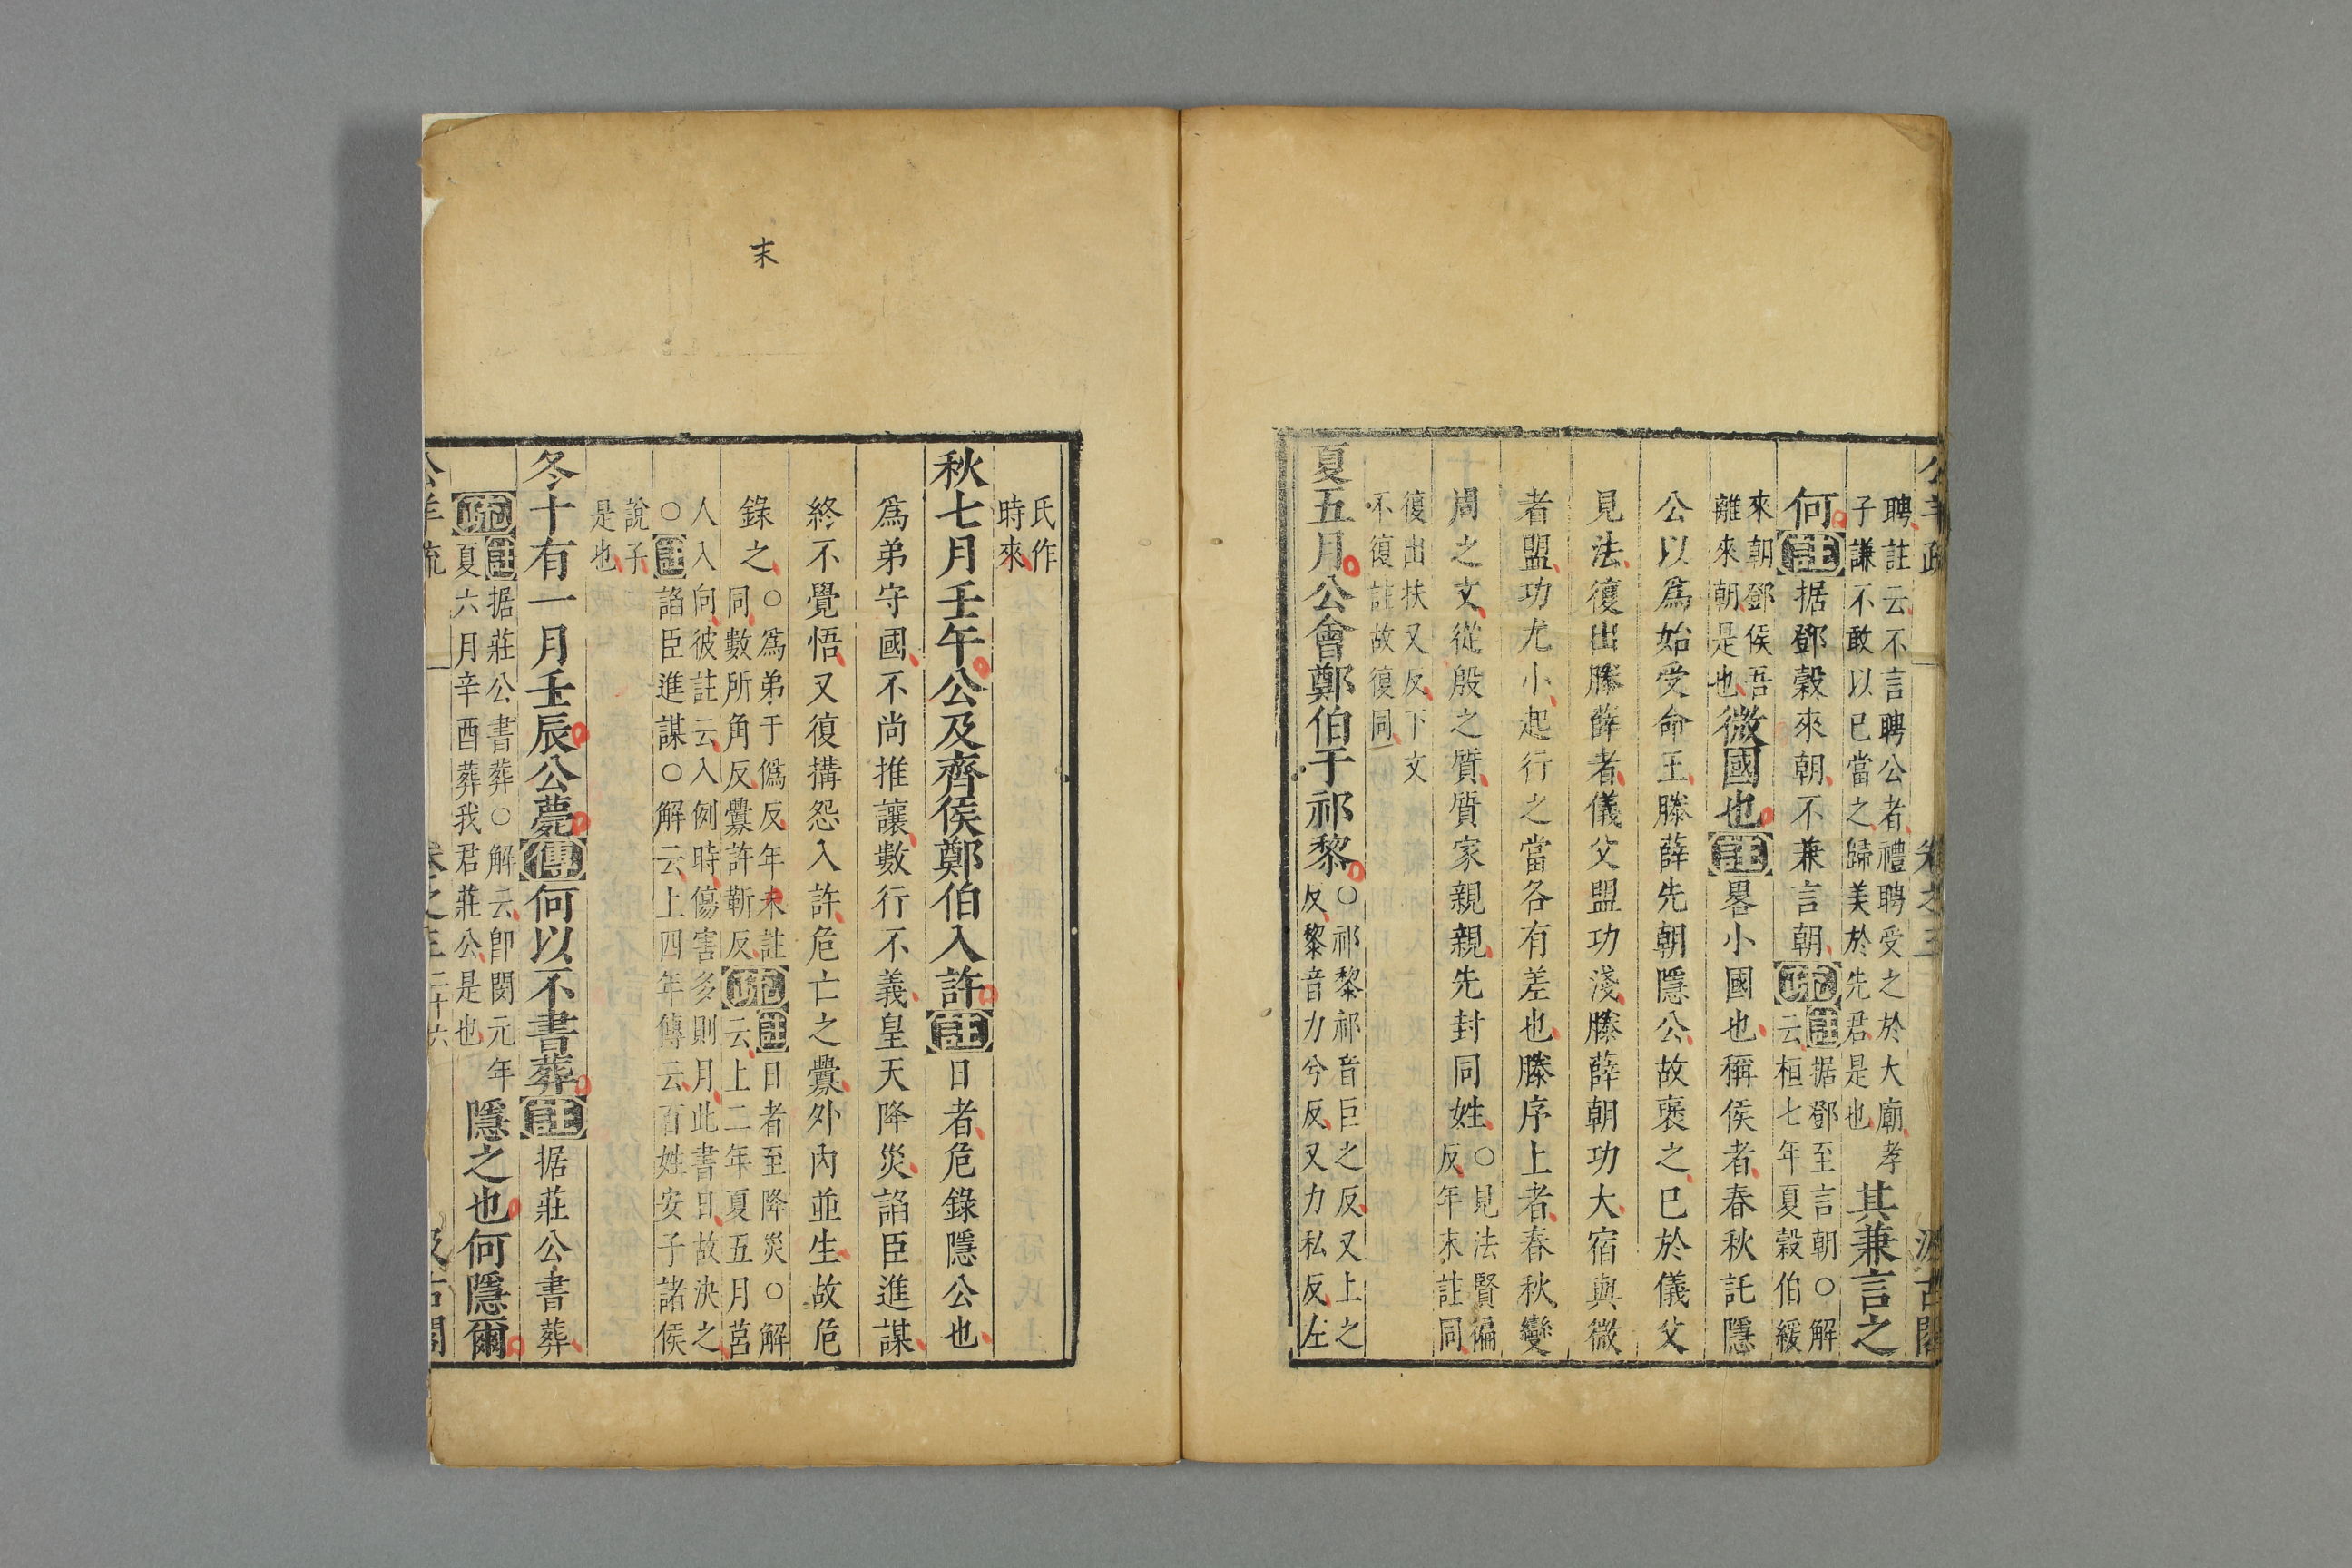 公羊疏 卷之三 汲古閣
聘註云不言聘公者禮聘受之於大廟孝
子謙不敢以已當之歸美於先君是也
其兼言之
何註据鄧穀來朝不兼言朝疏
註据鄧至言朝○解
云桓七年夏穀伯綏
來朝鄧侯吾
離來朝是也
微國也註畧小國也稱侯者春秋託隱
公以爲始受命王滕薛先朝隱公故褒之已於儀父
見法復出滕薛者儀父盟功淺滕薛朝功大宿與微
者盟功尤小起行之當各有差也滕序上者春秋變
周之文從殷之質質家親親先封同姓
○見法賢徧
反年末註同
復出扶又反下文
不復註故復同
夏五月公會鄭伯于祁黎
○祁黎祁音巨之反又上之
反黎音力兮反又力私反左
氏作
時來
秋七月壬午公及齊侯鄭伯入許註日者危錄隱公也
爲弟守國不尚推讓數行不義皇天降災諂臣進謀
終不覺悟又復搆怨入許危亡之釁外內並生故危
錄之
○爲弟于僞反年末註
同數所角反釁許靳反
疏
註日者至降災○解
云上二年夏五月莒
人入向彼註云入例時傷害多則月此書日故決之
○註諂臣進謀○解云上四年傳云百姓安子諸侯
說子
是也
冬十有一月壬辰公薨傳何以不書葬註据莊公書葬
疏
註据莊公書葬○解云卽閔元年
夏六月辛酉葬我君莊公是也
隱之也何隱爾
公羊疏 卷之三 二十六 汲古閣
末